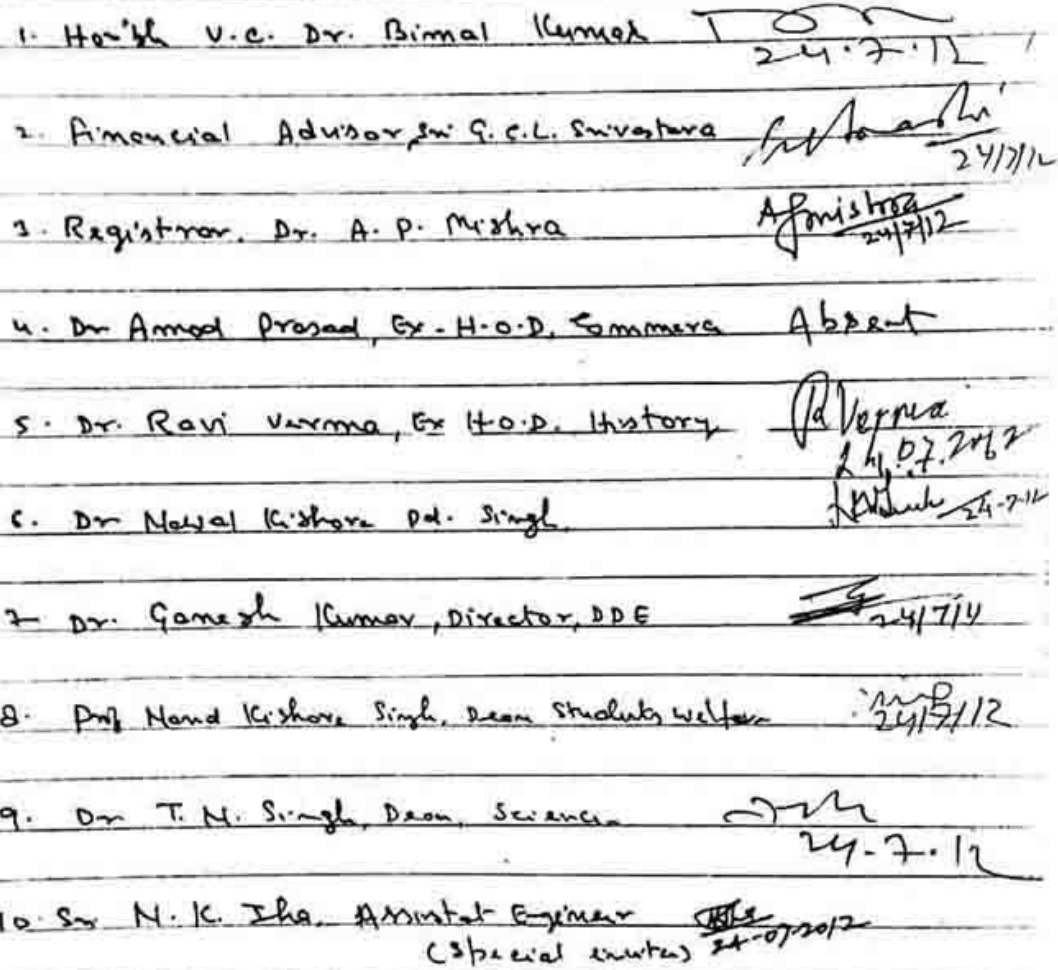 1. Hon'ble V.C. Dr. Bimal Kumar
24.7.12
2. Financial Advisor, Sri G.C.L. Srivastava
24/7/12
3. Registrar, Dr. A. P. Mishra APMishra
24/7/12
4. Dr Amod Prasad, Ex-H.O.D, Commerce Absent
5. Dr. Ravi Verma, Ex H.O.D. History R Verma
24.07.2012
6. Dr Nawal Kishore Pd. Singh 24-7-12
7 Dr. Ganesh Kumar, Director, DDE 24/7/12
8. Prof Nand Kishore Singh, Dean Students Welfare 24/7/12
9. Dr T. N. Singh, Dean, Science
24-7-12
10. Sri N. K. Jha, Assistat Engineer
(Special invitee) 24-07-2012